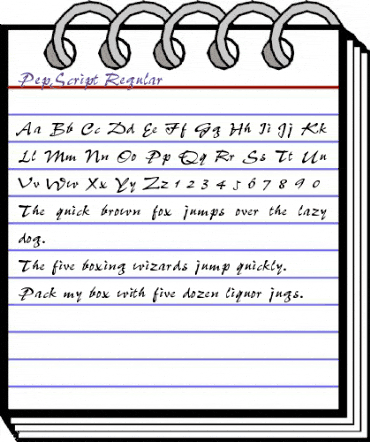 Pep,Script Regular
Aa Bb Cc Dd Ee Ff Gg Hh Ii Jj Kk
Ll Mm Nn Oo Pp Qq Rr Ss Tt Uu
Vv Ww Xx Yy Zz 1 2 3 4 5 6 7 8 9 0
The quick brown fox jumps over the lazy
dog.
The five boxing wizards jump quickly.
Pack my box with five dozen liquor jugs.